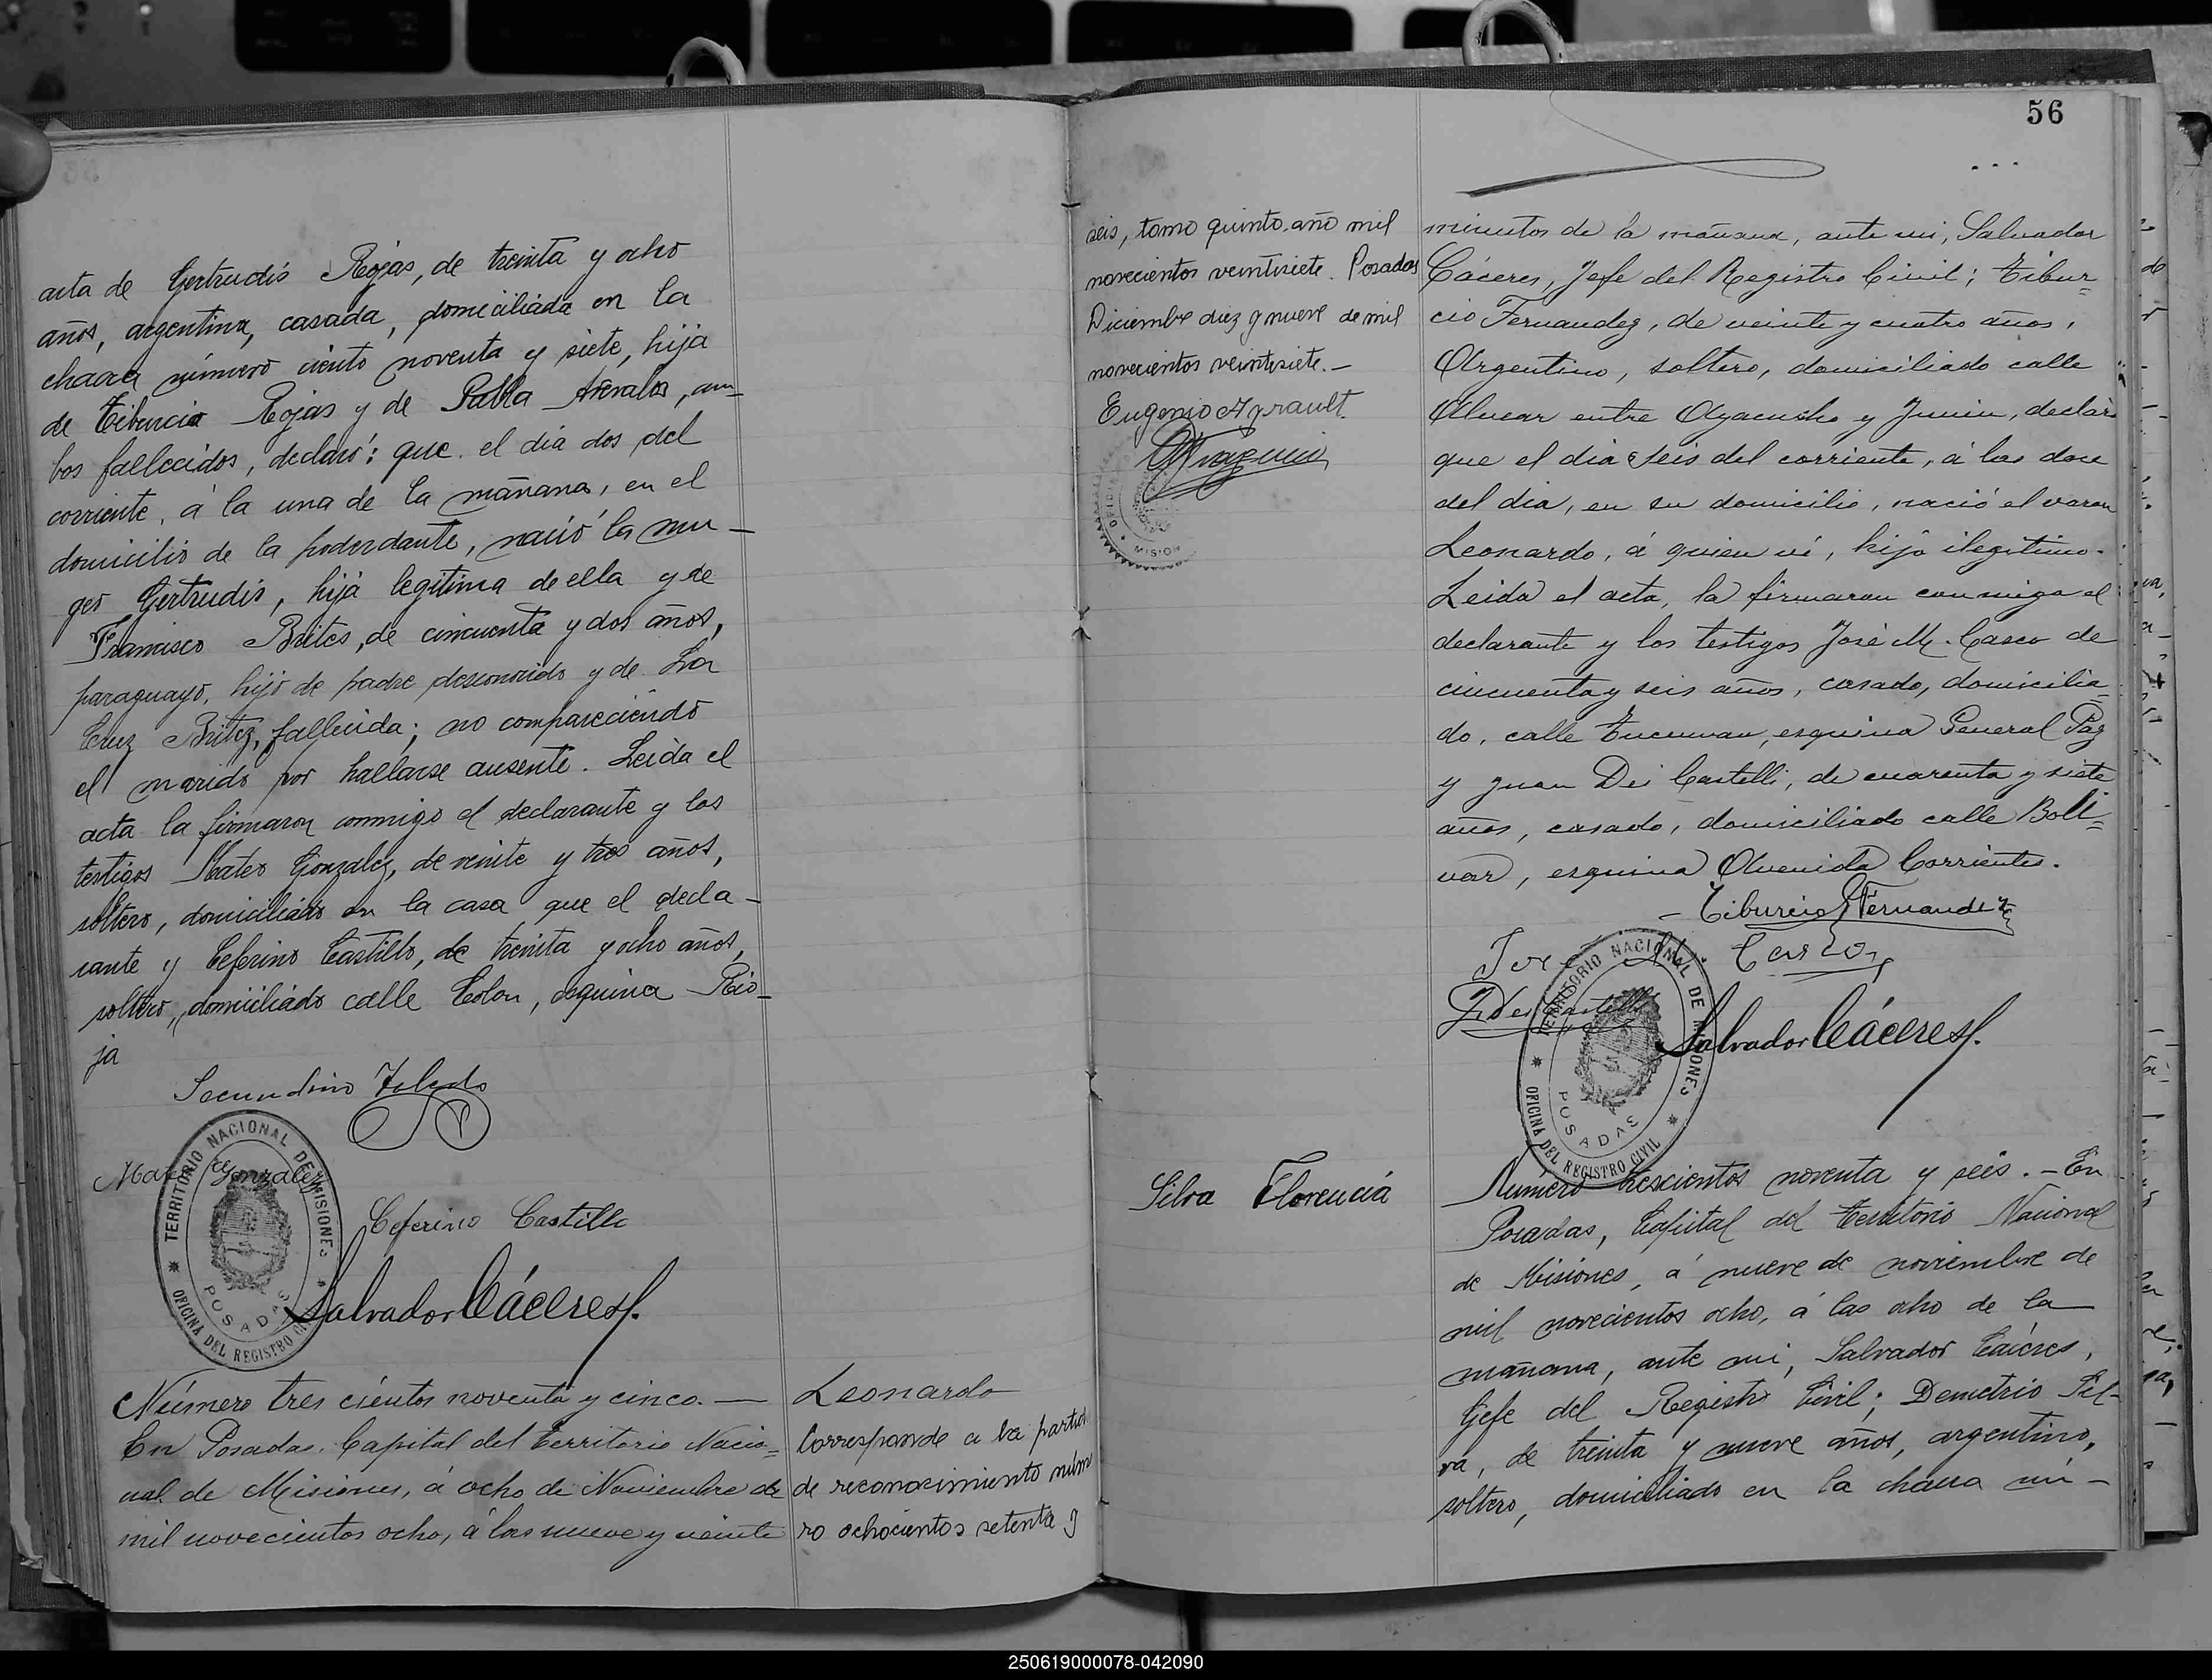 acta de Gertrudis Rojas, de treinta y ocho
años, argentina, casada, domiciliada en la
chacra número ciento noventa y siete, hija
de Tiburcio Rojas y de Pabla Arevalos, am-
bos fallecidos, declaró: que el día dos del
corriente, á la una de la mañana, en el
domicilio de la poderdante, nació la mu-
ger Gertrudis, hija legitima de ella y de
Francisco Brites, de cincuenta y dos años,
paraguayo, hijo de padre desconocido y de
Cruz Britez, fallecida; no compareciendo
el marido por hallarse ausente. Leida el
acta la firmaron conmigo el declarante y los
testigos Mateo Gonzalez, de veinte y tres años,
soltero, domiciliado en la casa que el decla-
rante y Ceferino Castillo, de treinta y ocho años,
soltero, domiciliado calle Colon, esquina Rio-
ja
Secundino Toledo
Mateo Gonzalez
TERRITORIO NACIONAL DE MISIONES
POSADAS
OFICINA DEL REGISTRO CIVIL
Ceferino Castillo
Salvador Cáceres
Número tres cientos noventa y cinco. —
En Posadas. Capital del Territorio Nacio=
nal de Misiones, á ocho de Noviembre de
mil novecientos ocho, á las nueve y veinte
Leonardo
Corresponde a la partida
de reconocimiento núme
ro ochocientos setenta y
56
seis, tomo quinto año mil
novecientos veintisiete. Posadas
Diciembre diez y nueve de mil
novecientos veintisiete.—
minutos de la mañana, ante mi, Salvador
Cáceres, Jefe del Registro Civil; Tibur=
cio Fernandez, de veinte y cuatro años,
Argentino, soltero, domiciliado calle
Alvear entre Ayacucho y Junin, declaró
que el día seis del corriente, á las doce
del dia, en su domicilio, nació el varon
Leonardo, á quien ví, hijo ilegitimo.
Leida el acta, la firmaron conmigo el
declarante y los testigos José M. Casco de
cincuenta y seis años, casado, domicilia=
do, calle Tucuman, esquina General Paz
y Juan Dei Castelli, de cuarenta y siete
años, casado, domiciliado calle Boli=
var, esquina Avenida Corrientes.
Tiburcio Fernandez
TERRITORIO NACIONAL DE MISIONES
POSADAS
OFICINA DEL REGISTRO CIVIL
Salvador Cáceres
Silva Florencia
Numero trescientos noventa y seis. - En
Posadas, Capital del Territorio Nacional
de Misiones, á nueve de noviembre de
mil novecientos ocho, á las ocho de la
mañana, ante mi, Salvador Cáceres,
Gefe del Registro Civil; Demetrio Sil-
va, de treinta y nueve años, argentino,
soltero, domiciliado en la chacra nú-
250619000078-042090